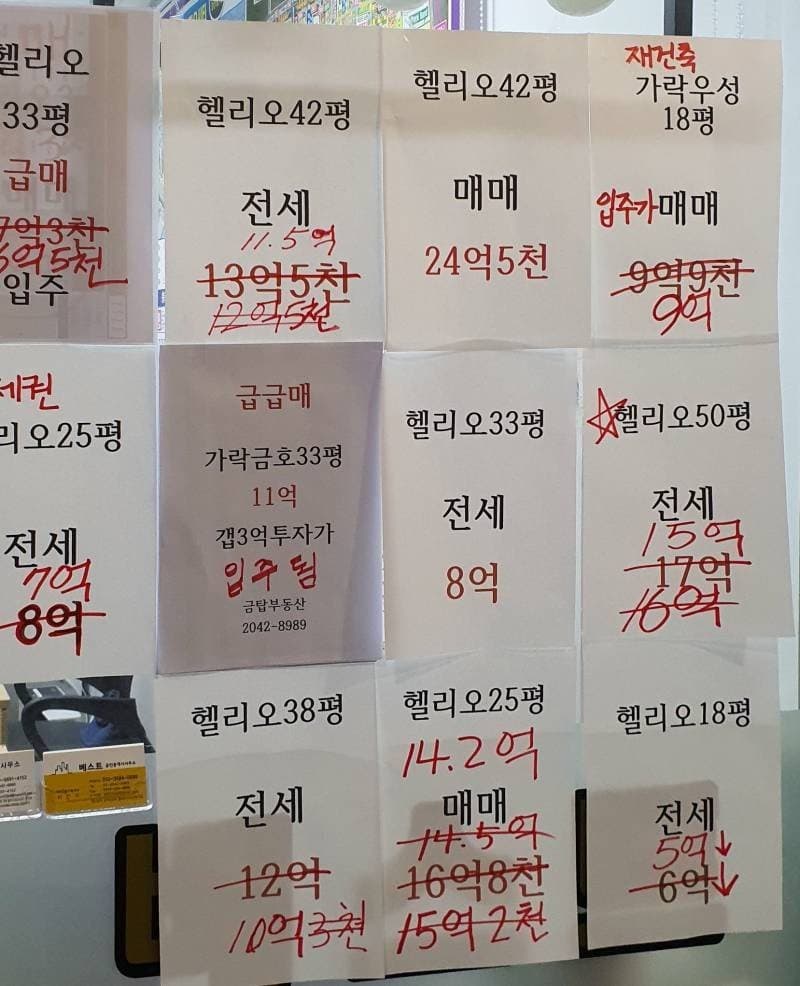 헬리오
33평
급급매
7억3천
6억5천
입주
헬리오42평
전세
11.5억
13억5천
12억5천
헬리오42평
매매
24억5천
재건축
가락우성
18평
입주가매매
9억9천
9억
세권
리오25평
전세
7억
8억
급급매
가락금호33평
11억
갭3억투자가
입주됨
금탑부동산
2042-8989
헬리오33평
전세
8억
☆헬리오50평
전세
15억
17억
16억
헬리오38평
전세
12억
10억3천
헬리오25평
14.2억
매매
14.5억
16억8천
15억2천
헬리오18평
전세
5억↓
6억↓
사무소
베스트